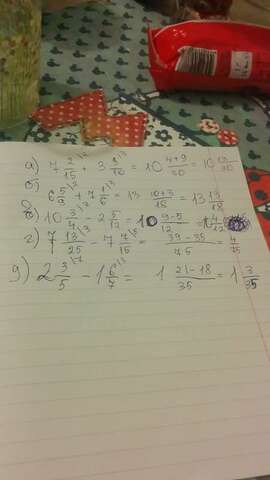 а) 7 2/15 + 3 3/10 = 10 4+9/30 = 10 13/30
б) 6 5/9 + 7 1/6 = 13 10+3/18 = 13 13/18
в) 10 3/4 - 2 5/12 = 10 9-5/12 =
г) 7 13/25 - 7 7/15 = 39-35/75 = 4/75
д) 2 3/5 - 1 6/7 = 1 21-18/35 = 1 3/35